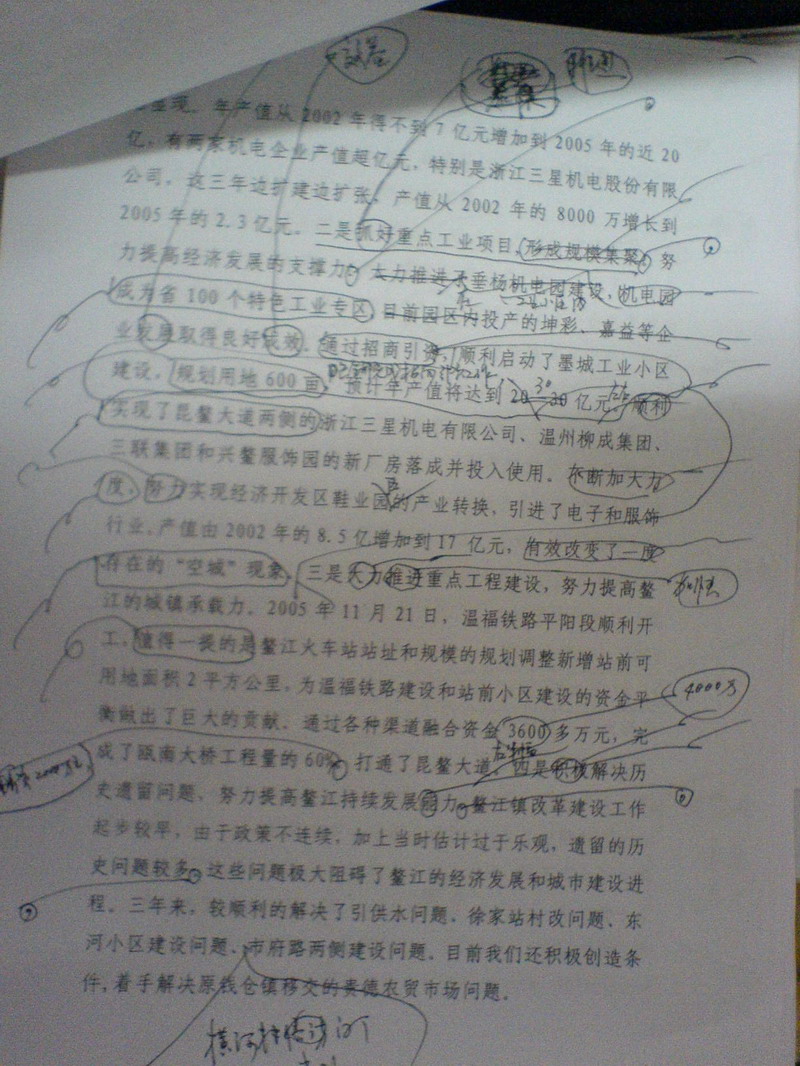 显现。年产值从 2002 年得不到 7 亿元增加到 2005 年的近 20
亿，有两家机电企业产值超亿元，特别是浙江三星机电股份有限
公司，这三年边扩建边扩张，产值从 2002 年的 8000 万增长到
2005 年的 2.3 亿元。二是抓好重点工业项目，形成规模集聚，努
力提高经济发展的支撑力。大力推进了垂杨机电园建设，机电园
成为省 100 个特色工业专区，目前园区内投产的坤彩、嘉益等企
业发展取得良好成效。通过招商引资，顺利启动了墨城工业小区
建设，规划用地 600 亩，预计年产值将达到 20-30 亿元。顺利
30
实现了昆鳌大道两侧的浙江三星机电有限公司、温州柳成集团、
三联集团和兴鳌服饰园的新厂房落成并投入使用。不断加大力
度，努力实现经济开发区鞋业园的产业转换，引进了电子和服饰
行业，产值由 2002 年的 8.5 亿增加到 17 亿元，有效改变了一度
存在的“空城”现象。三是大力推进重点工程建设，努力提高鳌
江的城镇承载力。2005 年 11 月 21 日，温福铁路平阳段顺利开
工，值得一提的是鳌江火车站站址和规模的规划调整新增站前可
用地面积 2 平方公里，为温福铁路建设和站前小区建设的资金平
4000万
衡做出了巨大的贡献。通过各种渠道融合资金 3600 多万元，完
成了瓯南大桥工程量的 60%，打通了昆鳌大道。四是积极解决历
史遗留问题，努力提高鳌江持续发展能力。鳌江镇改革建设工作
起步较早，由于政策不连续，加上当时估计过于乐观，遗留的历
史问题较多，这些问题极大阻碍了鳌江的经济发展和城市建设进
程。三年来，较顺利的解决了引供水问题、徐家站村改问题、东
河小区建设问题、市府路两侧建设问题。目前我们还积极创造条
件，着手解决原钱仓镇移交的责德农贸市场问题。